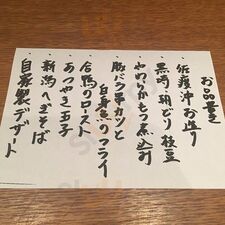 お品書き
佐渡沖お造り
黒崎 朝どり枝豆
やわらかもつ煮込み
豚バラ串カツと
白身魚のフライ
合鴨のロースト
あつやき玉子
新潟へぎそば
自家製デザート